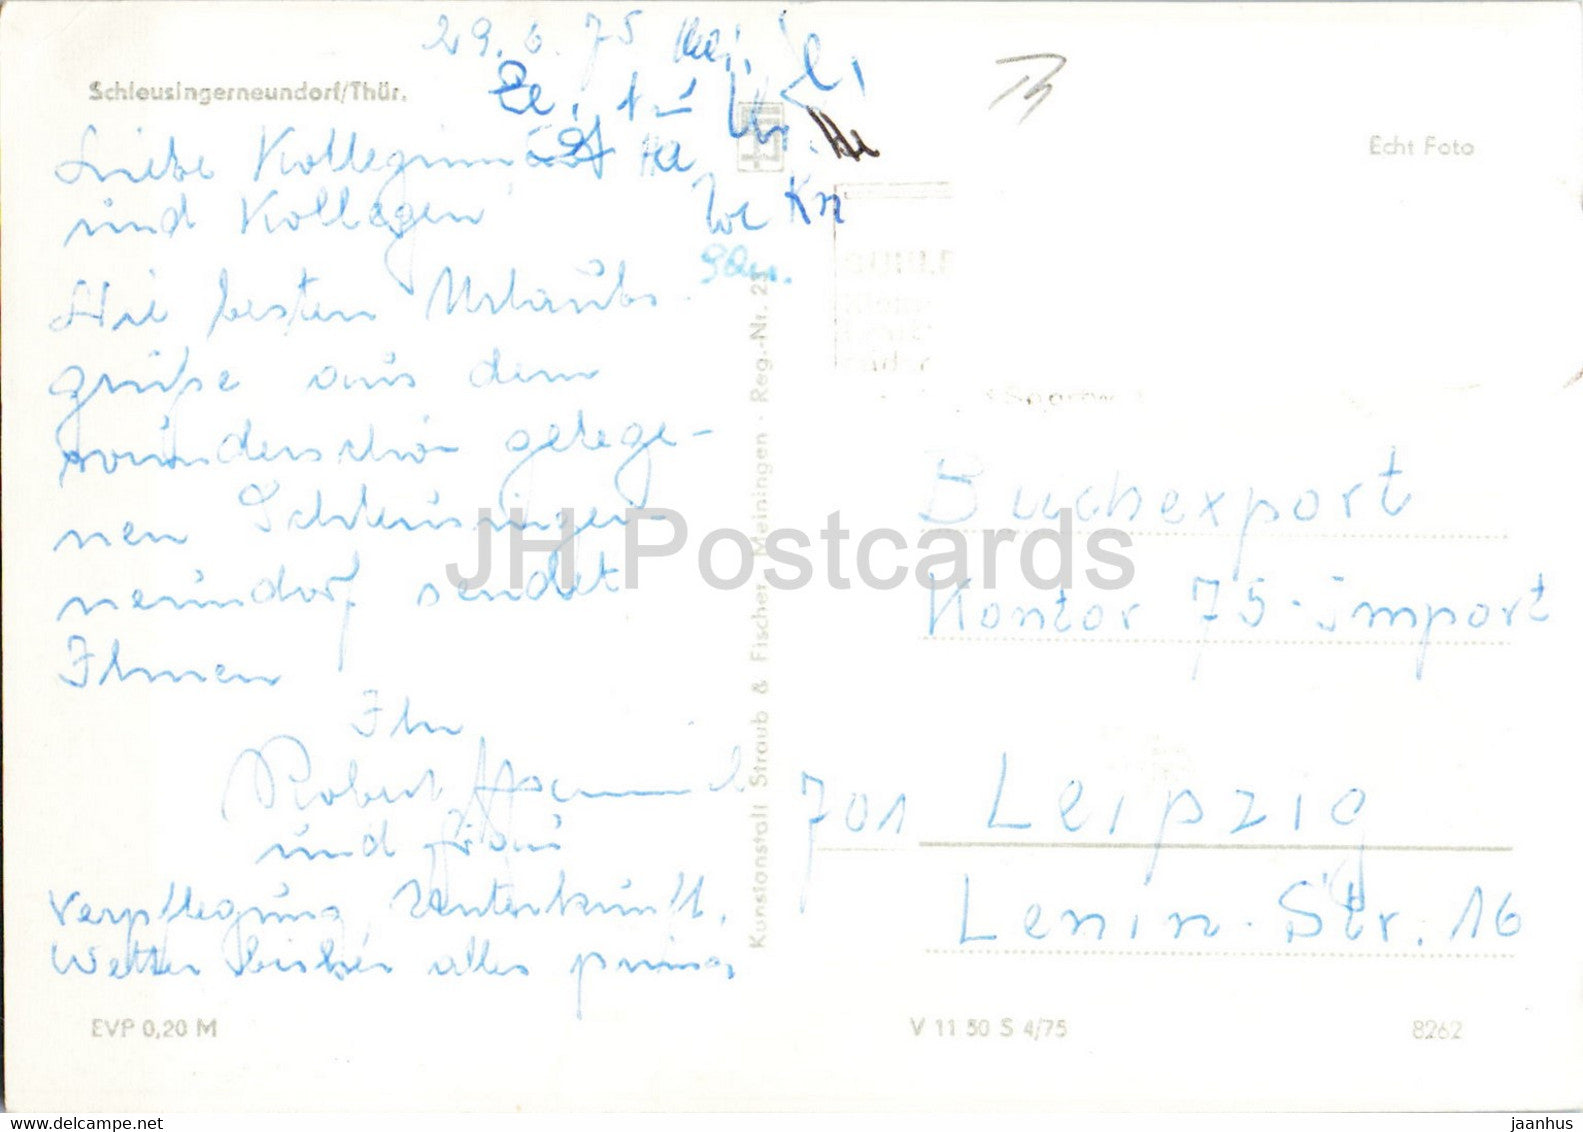 29. 6. 75
Schleusingerneundorf/Thür.
Echt Foto
Liebe Kolleginnen
und Kollegen
Die besten Urlaubs-
grüße aus dem
wunderschön gelege-
nen Schleusinger-
neundorf sendet
Ihnen
Ihr
Robert
und Frau
Verpflegung, Unterkunft,
Wetter bisher alles prima
Ze.
Ha
We Kn
Kunstanstalt Straub & Fischer, Meiningen · Reg.-Nr. 23
Buchexport
Kontor 75-import
701 Leipzig
Lenin-Str. 16
EVP 0,20 M
V 11 50 S 4/75
8262
JH Postcards
www.delcampe.net
jaanhus